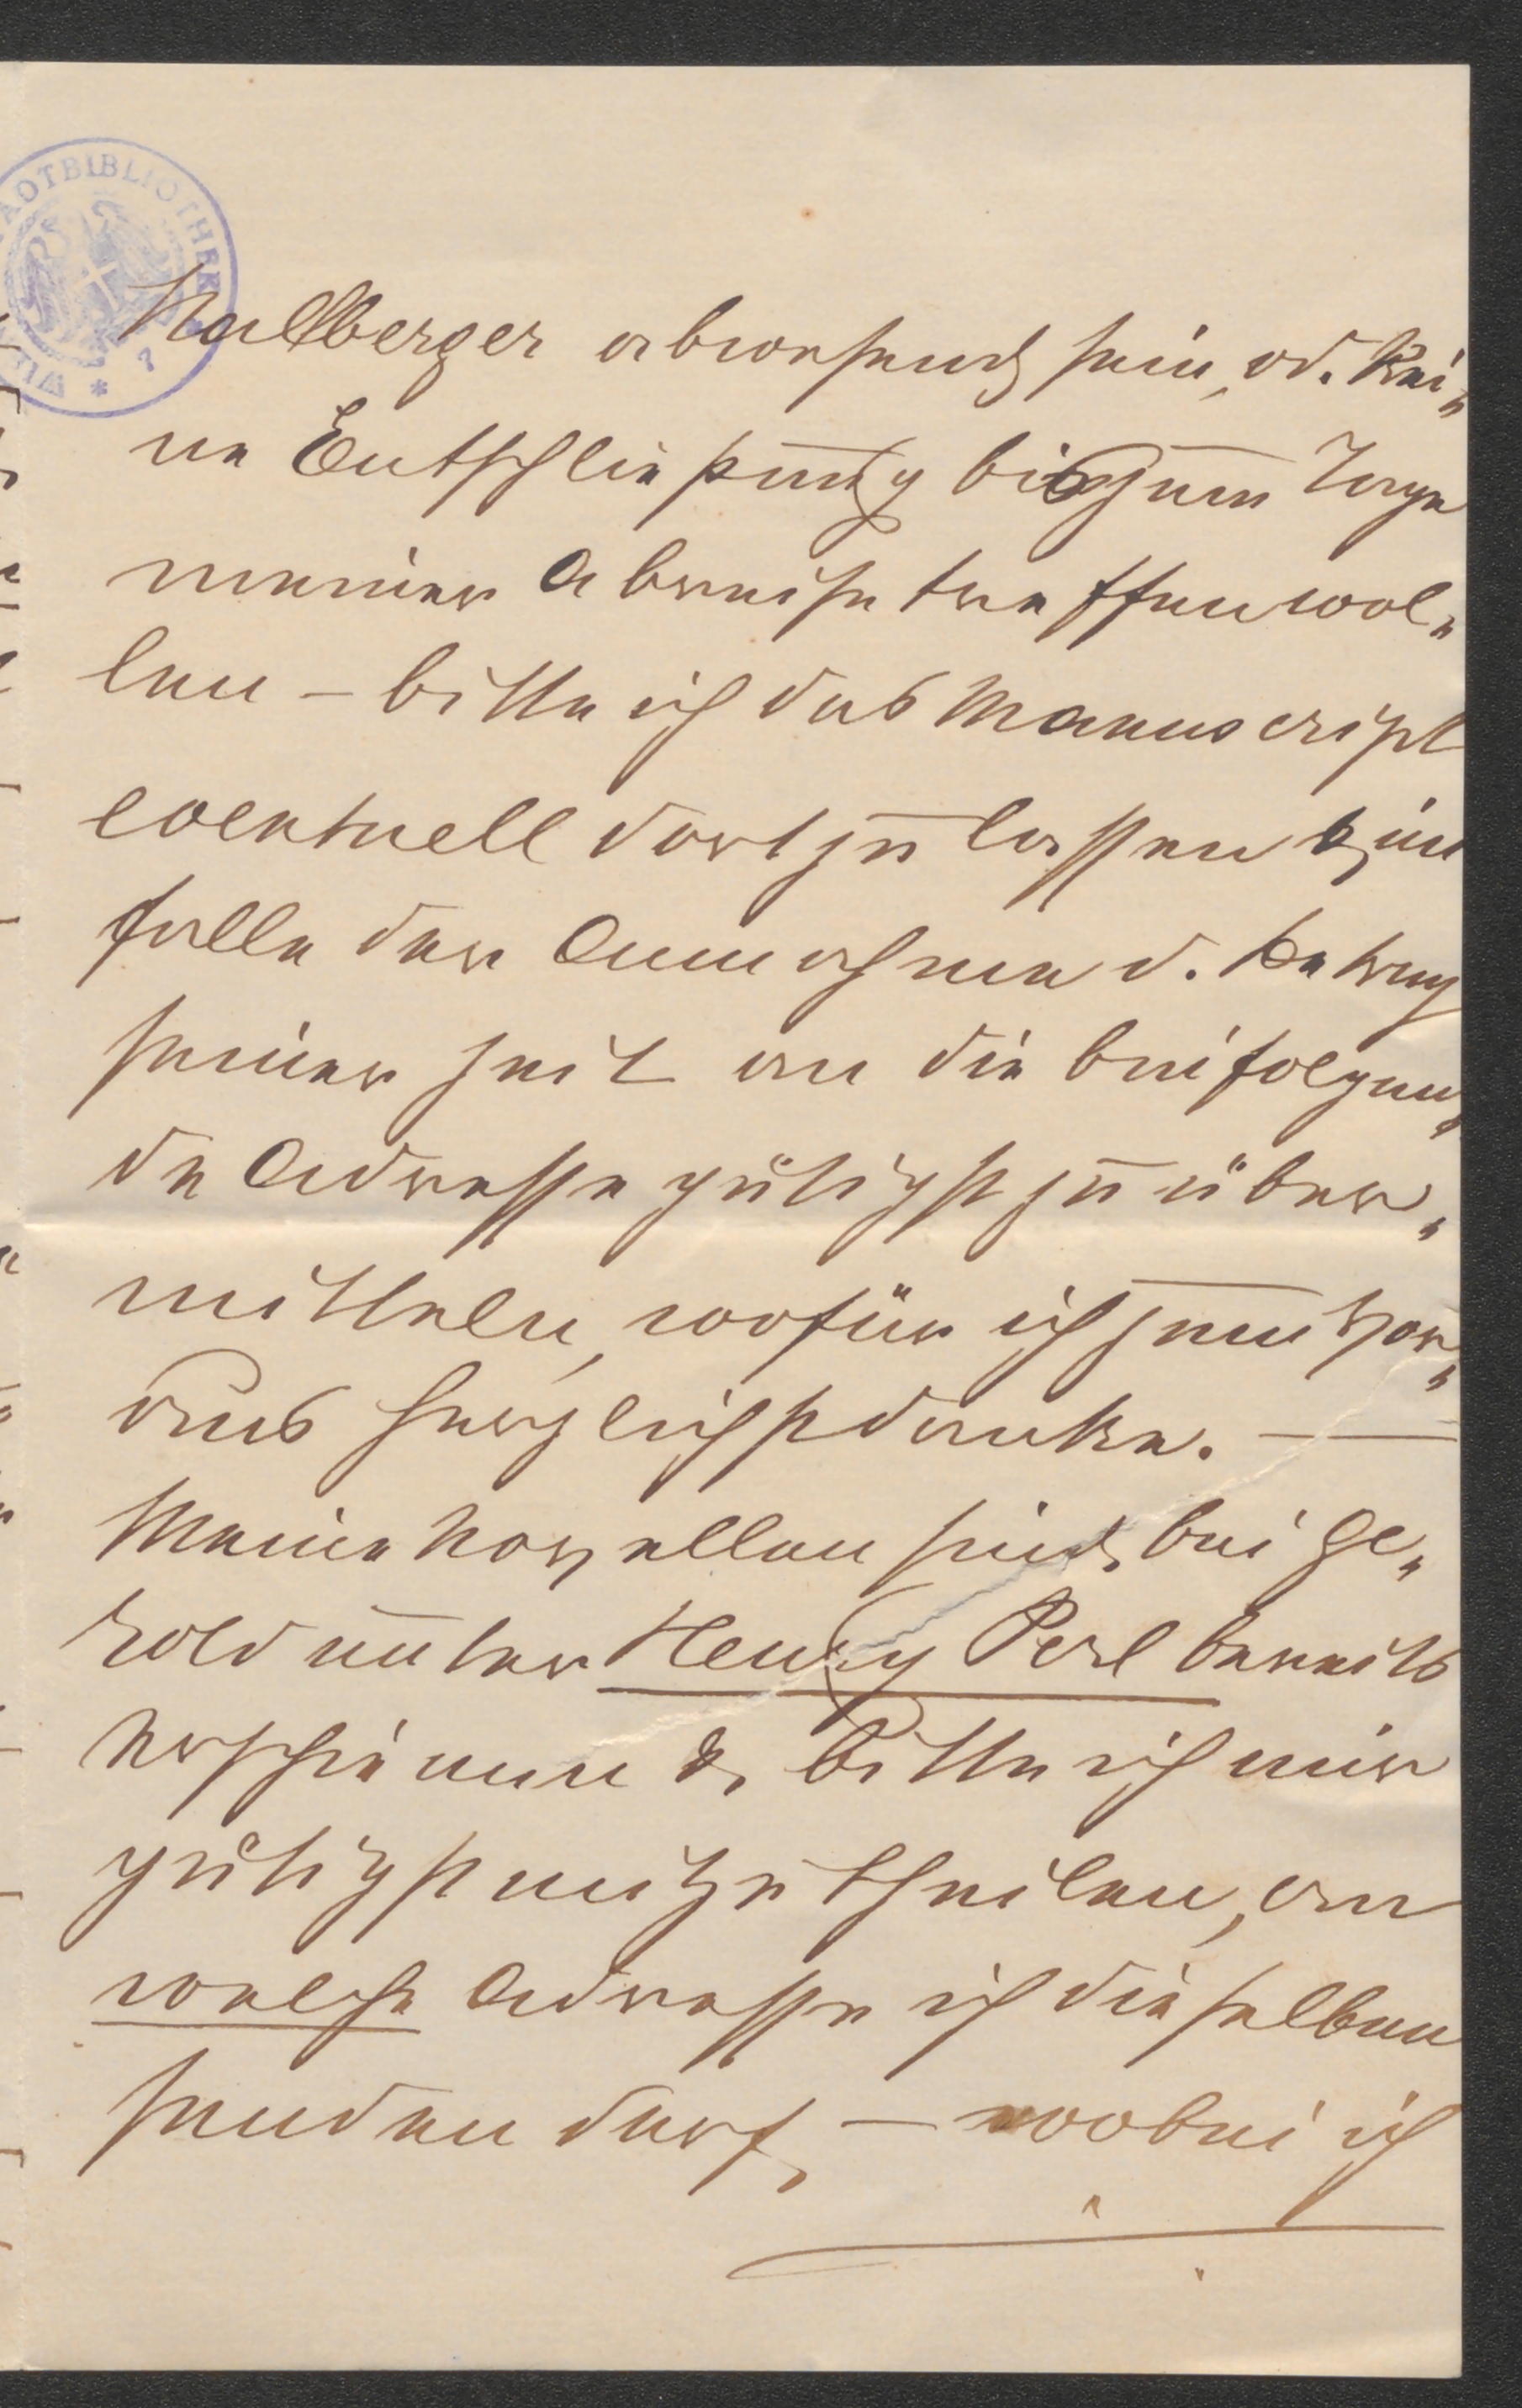 STADTBIBLIOTHEK
WIEN * 7
Hallberger abwesend sein, od. kei„
ne Entschließung bis zum Tage
meiner Abreise treffen wol„
len – bitte ich das Manuscript
eventuell dort zu lassen & im
falle der Annahme d. Betrag
seiner Zeit an die beifolgen„
de Adresse gütigst zu über„
mitteln, wofür ich zum Vor„
aus herzlichst danke. —
Meine Novellen sind bei Ge„
rold unter Henry Perl bereits
erschienen & bitte ich mir
gütigst mitzutheilen, an
welche Adresse ich dieselben
senden darf, – wobei ich